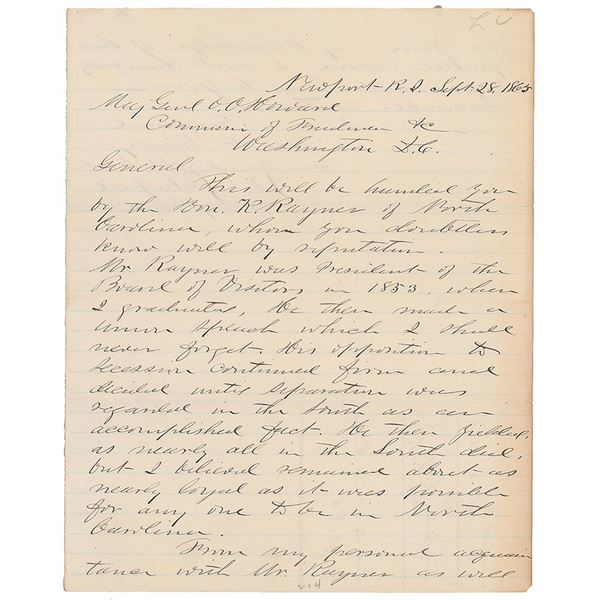 L U
Newport R. I. Sept. 28, 1865
Maj Genl O. O. Howard
of Freedmen &c
Washington D. C.
General
This will be handed you
by the Hon. K. Rayner of North
Carolina, whom you doubtless
know well by reputation.
Mr. Rayner was President of the
Board of Visitors in 1853, when
I graduated, He then made a
Union speech which I shall
never forget. His opposition to
secession continued firm and
decided until separation was
regarded in the South as an
accomplished fact. He then yielded,
as nearly all in the South did,
but I believe remained about as
nearly loyal as it was possible
for any one to be in North
Carolina.
From my personal acquain
tance with Mr. Rayner as well
204